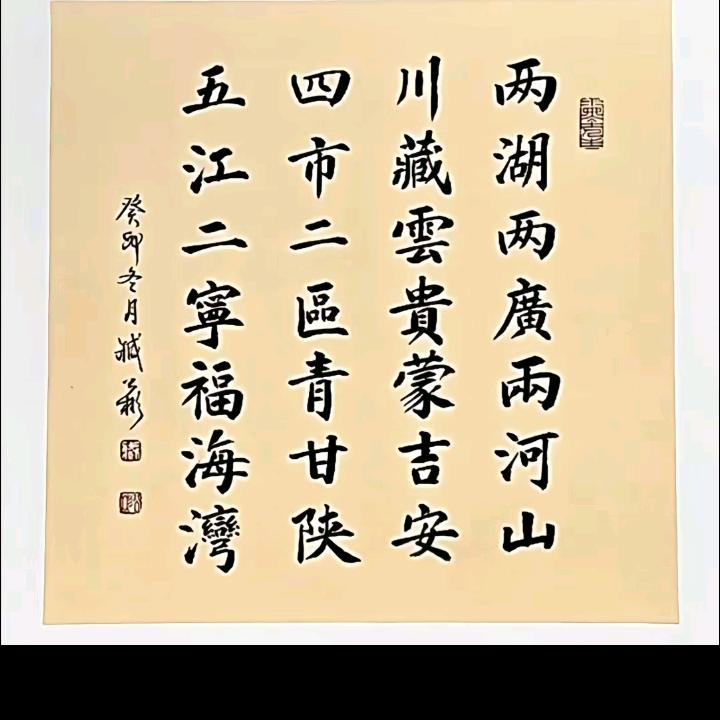 两湖两廣兩河山
川藏雲貴蒙吉安
四市二區青甘陝
五江二寧福海灣
癸卯冬月